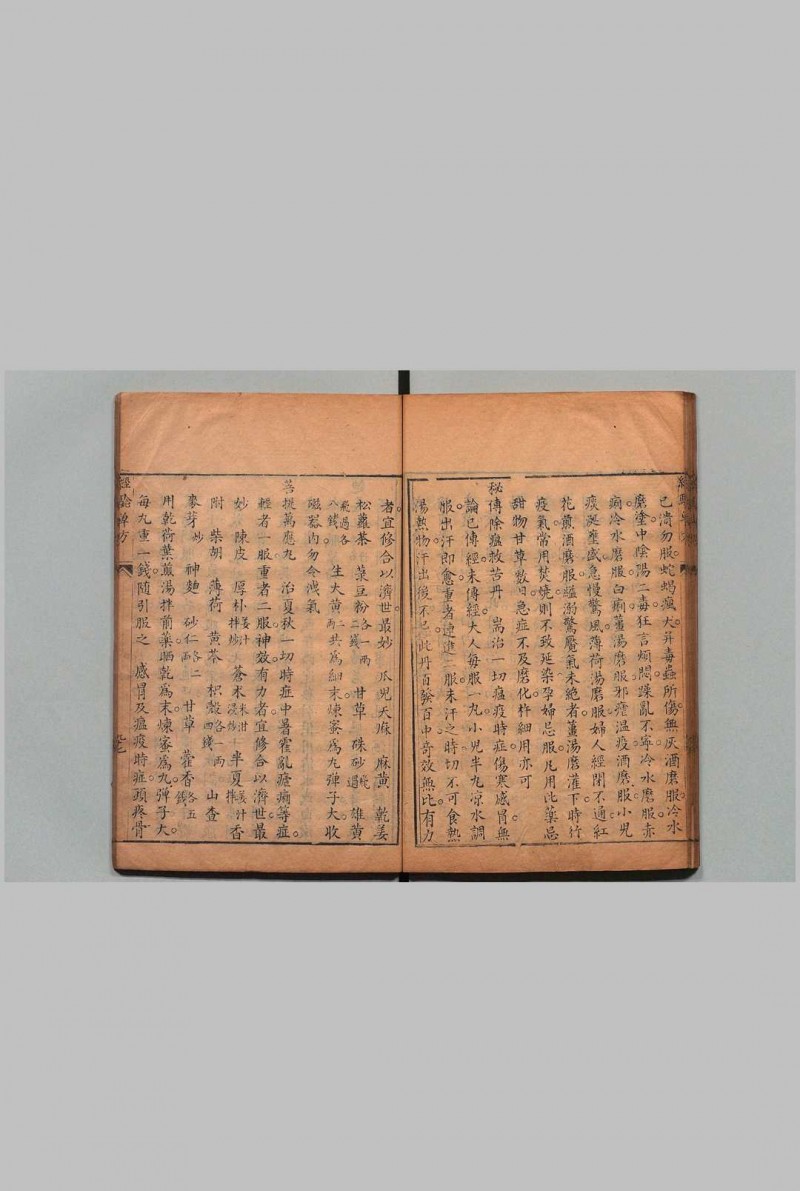 已潰勿服蛇蝎瘋犬并毒蟲所傷無灰酒磨服冷水
磨塗中陰陽二毒狂言煩悶躁亂不寧冷水磨服赤
痢冷水磨服白痢薑湯磨服邪瘧溫疫酒磨服小兒
痰涎壅盛急慢驚風薄荷湯磨服婦人經閉不通紅
花煎酒磨服縊溺驚魘氣未絶者薑湯磨灌下時行
疫氣常用焚燒則不致延染孕婦忌服凡用此藥忌
甜物甘草數日急症不及磨化杵細用亦可
秘傳除瘟救苦丹 耑治一切瘟疫時症傷寒感冒無
論已傳經未傳經大人每服一丸小兒半丸凉水調
服出汗即愈重者連進二服未汗之時切不可食熱
湯熱物汗出後不忌此丹百發百中奇效無比有力
者宜修合以濟世最妙 瓜兒天麻 麻黃 乾姜
松蘿茶 菉豆粉各一兩二錢 甘草 硃砂 飛過 雄黃
飛過各八錢 生大黃二兩 共爲細末煉蜜爲丸彈子大收
磁器內勿令洩氣
菩提萬應丸 治夏秋一切時症中暑霍亂瘧痢等症
輕者一服重者二服神效有力者宜修合以濟世最
妙 陳皮 厚朴姜汁拌炒 蒼术米泔浸炒 半夏姜汁拌 香
附 柴胡 薄荷 黃芩 枳殼各一兩四錢 山查
麥芽炒 神麯 砂仁各二兩 甘草 藿香各五錢
用乾荷葉煎湯拌前藥晒乾爲末煉蜜爲丸彈子大
每丸重一錢隨引服之 感冒及瘟疫時症頭疼骨
經驗單方